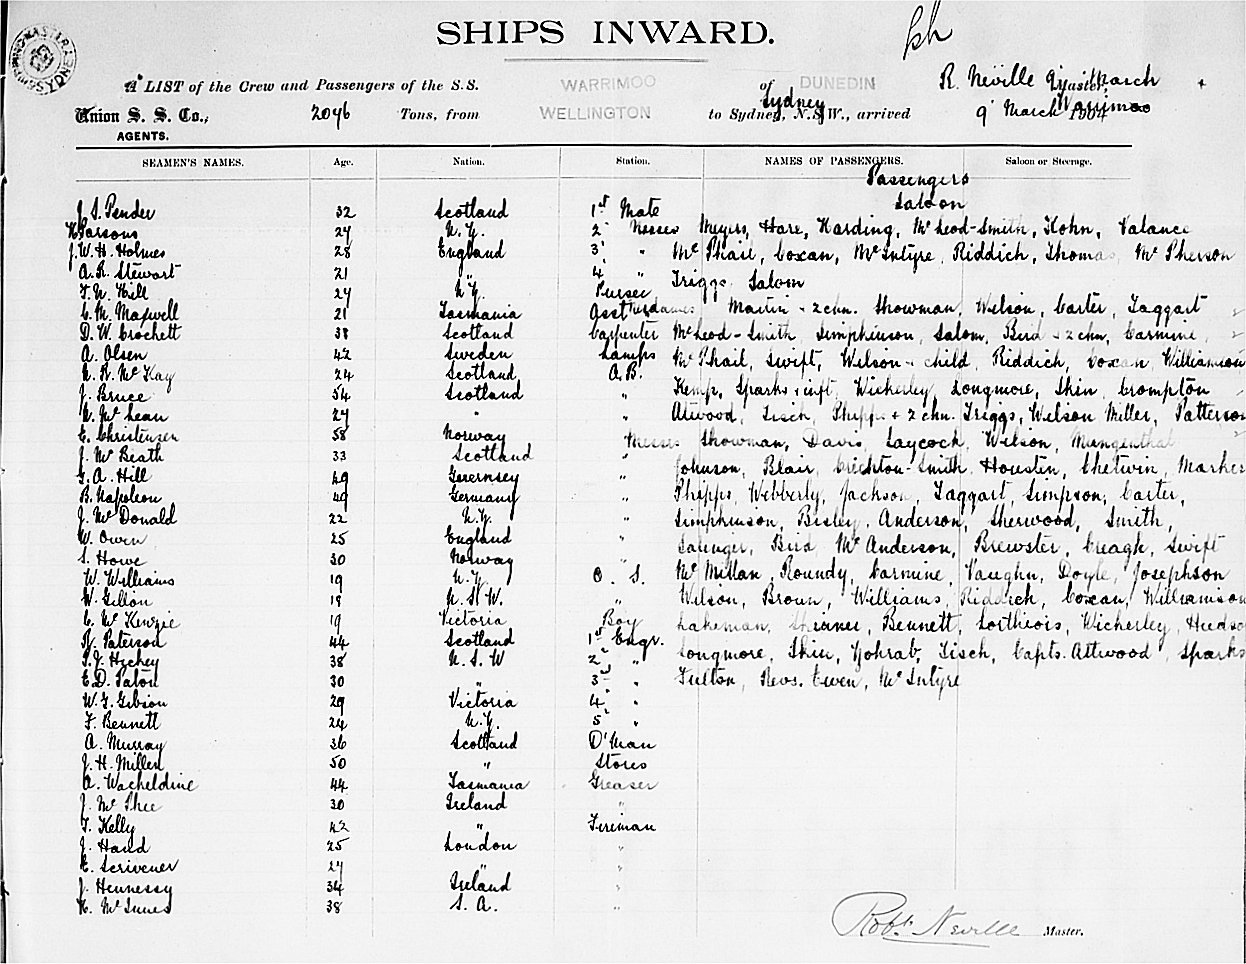 SHIPS INWARD.
A LIST of the Crew and Passengers of the S.S. WARRIMOO of DUNEDIN R. Neville Master,
Union S. S. Co., 2076 Tons, from WELLINGTON to Sydney, N.S.W., arrived 9 March 1904
AGENTS.
SEAMEN'S NAMES. Age. Nation. Station. NAMES OF PASSENGERS. Saloon or Steerage.
Passengers
Saloon
J. S. Pender 32 Scotland 1st Mate
Parsons 27 N.Z. 2 Messrs Meyers, Hare, Harding, McLeod-Smith, Kohn, Valance
J. W. H. Holmes 28 England 3 " McPhail, Coxan, McIntyre, Riddich, Thomas, McPherson
A. R. Stewart 21 " 4 " Triggs, Salom
F. N. Hill 27 N.Z. Purser
C. M. Maxwell 21 Tasmania Asst " Mesdames Martin + 2 chn. Showman, Wilson, Carter, Taggart
D. W. Crockett 38 Scotland Carpenter McLeod-Smith, Simphinson, Salom, Bird + 2 chn, Carmine,
A. Olsen 42 Sweden Lamps McPhail, Swift, Wilson + child, Riddich, Coxan, Williamson
N. R. McKay 24 Scotland A.B. Kemp, Sparks + inft, Wickerley, Longmore, Skin, Crompton
J. Bruce 54 Scotland "
N. McLean 27 " " Attwood, Tisch, Phipps + 2 chn. Triggs, Wilson, Miller, Patterson
C. Christensen 58 Norway Messrs Showman, Davis, Laycock, Wilson, Mungenthal
J. McBeath 33 Scotland "
G. A. Hill 49 Guernsey " Johnson, Blair, Crichton-Smith, Houstin, Chetwin, Markes
B. Napoleon 49 Germany " Phipps, Webberly, Jackson, Taggart, Simpson, Carter,
J. McDonald 22 N.Z. " Simphinson, Bisley, Anderson, Sherwood, Smith,
W. Owen 25 England " Salinger, Bird, McAnderson, Brewster, Creagh, Swift
S. Howe 30 Norway "
W. Williams 19 N.Z. O. S. McMillan, Roundy, Carmine, Vaughn, Doyle, Josephson
W. Gillon 18 N.S.W. " Wilson, Broun, Williams, Riddich, Coxan, Williamson
C. McKenzie 19 Victoria Boy Lakeman, Bennett, Wickerley, Hudson
R. Paterson 44 Scotland 1st Engr.
P. J. Hickey 38 N.S.W 2 " Longmore, Skin, Tisch, Capts. Attwood, Sparks
E. D. Paton 30 " 3 " Fulton, Revs. Ewen, McIntyre
W. G. Gibson 29 Victoria 4 "
F. Bennett 24 N.Z. 5 "
A. Murray 36 Scotland D'Man
J. H. Miller 50 " Stores
A. Wacheldine 44 Tasmania Greaser
J. McPhee 30 Ireland "
T. Kelly 42 " Fireman
J. Hand 25 London "
E. Scrivener 27 " "
J. Hennessy 34 Ireland "
H. McInnes 38 S. A. "
Robt. Neville Master.